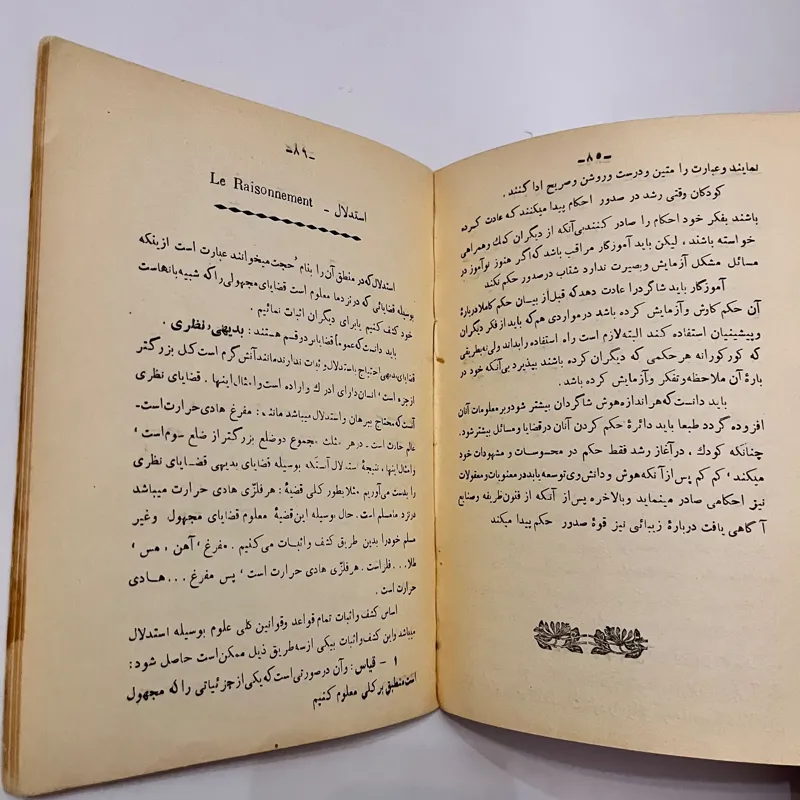 -۸۵-
نمایند وعبارت را متین ودرست وروشن وصریح ادا کنند .
کودکان وقتی رشد در صدور احکام پیدا میکنند که عادت کرده
باشند بفکر خود احکام را صادر کنند بی‌آنکه از دیگران کمك وهمراهی
خواسته باشند ، لیکن باید آموزگار مراقب باشد که اگر هنوز نوآموز در
مسائل مشکل آزمایش وبصیرت ندارد شتاب در صدور حکم نکند
آموزگار باید شاگرد را عادت دهد که قبل از بیان حکم کاملا دربارهٔ
آن حکم کاوش وآزمایش کرده باشد در مواردی هم که باید از فکر دیگران
وپیشینیان استفاده کند البته لازم است راه استفاده را بداند ولی نه بطریقی
که کورکورانه هر حکمی که دیگران کرده باشند بپذیرد بی‌آنکه خود در
بارهٔ آن ملاحظه وتفکر وآزمایش کرده باشد .
باید دانست که هر اندازه هوش شاگردان بیشتر شود وبر معلومات آنان
افزوده گردد طبعا باید دائرهٔ حکم کردن آنان در قضایا ومسائل بیشتر شود.
چنانکه کودك ، در آغاز رشد فقط حکم در محسوسات و مشهودات خود
میکند ، کم کم پس از آنکه هوش ودانش وی توسعه یابد در معنویات ومعقولات
نیز احکامی صادر مینماید وبالاخره پس از آنکه از فنون ظریفه وصنایع
آگاهی یافت دربارهٔ زیبائی نیز قوهٔ صدور حکم پیدا میکند
-۸۶-
استدلال - Le Raisonnement
استدلال که در منطق آن را بنام حجت میخوانند عبارت است از اینکه
بوسیله قضایائی که در نزد ما معلوم است قضایای مجهولی را که شبیه بآنهاست
خود کشف کنیم یا برای دیگران اثبات نمائیم .
باید دانست که عموماً قضایا بر دو قسم هستند : بدیهی، نظری .
قضایای بدیهی احتیاج باستدلال و ثبات ندارند مانند آتش گرم است کل بزرگتر
از جزء است ، انسان دارای ادراك و اراده است وامثال اینها . قضایای نظری
آنست که محتاج ببرهان و استدلال میباشد مانند : مفرغ هادی حرارت است-
عالم حادث است . در هر مثلث مجموع دو ضلع بزرگتر از ضلع سوم است ،
وامثال اینها ، نتیجهٔ استدلال آنست که بوسیله قضایای بدیهی قضایای نظری
را بدست می‌آوریم مثلا بطور کلی قضیهٔ : هر فلزی هادی حرارت میباشد
در نزد ما مسلم است . حال بوسیله این قضیهٔ معلوم قضایای مجهول وغیر
مسلم خود را بدین طریق کشف واثبات می‌کنیم . مفرغ ، آهن ، مس ،
طلا... فلز است . هر فلزی هادی حرارت است ، پس مفرغ ... هادی
حرارت است .
اساس کشف واثبات تمام قواعد وقوانین کلی علوم بوسیله استدلال
میباشد واین کشف واثبات بیکی از سه طریق ذیل ممکن است حاصل شود :
۱ - قیاس : وآن در صورتی است که یکی از جزئیاتی را که مجهول
است منطبق بر کلی معلوم کنیم